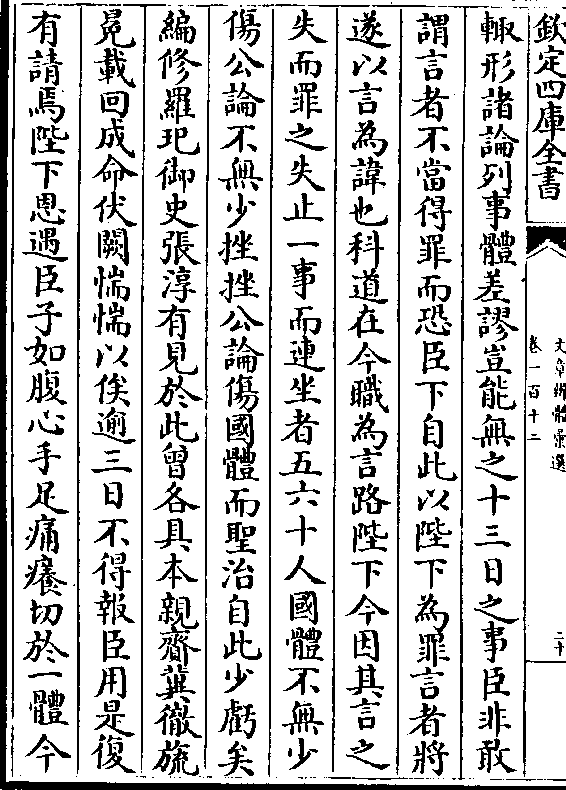 欽定四庫全書
文章辨體彙選
卷一百十二
二十
輙形諸論列事體差謬豈能無之十三日之事臣非敢
謂言者不當得罪而恐臣下自此以陛下為罪言者將
遂以言為諱也科道在今職為言路陛下今因其言之
失而罪之失止一事而連坐者五六十人國體不無少
傷公論不無少挫挫公論傷國體而聖治自此少虧矣
編修羅玘御史張淳有見於此曾各具本親齎冀徹旒
冕載回成命伏闕惴惴以俟逾三日不得報臣用是復
有請焉陛下恩遇臣子如腹心手足痛癢切於一體今